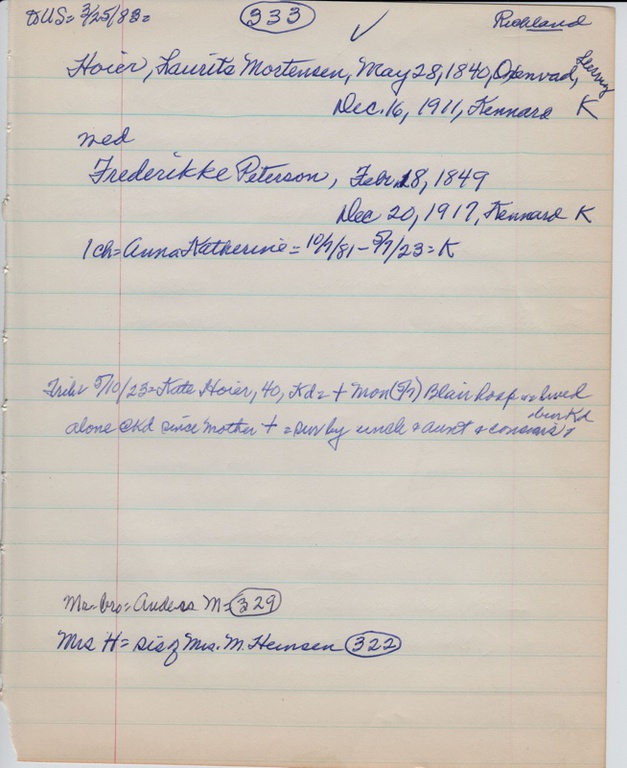 to US= 3/25/83=
333
Richland
Hoier, Laurits Mortensen, May 28, 1840, Oxenvad,
Dec. 16, 1911, Kennard K
med
Frederikke Peterson, Feb. 18, 1849
Dec 20, 1917, Kennard K
1 ch= Anna Katherine= 10/7/81 - 5/7/23= K
5/10/23= Kate Hoier, 40, Kd= + Mon (5/7) Blair hosp lived
bur Kd
alone @Kd since mother + = sur by uncle & aunt & cousins
Mr= bro= Anders M= 329
Mrs H= sis of Mrs. M. Heinsen 322